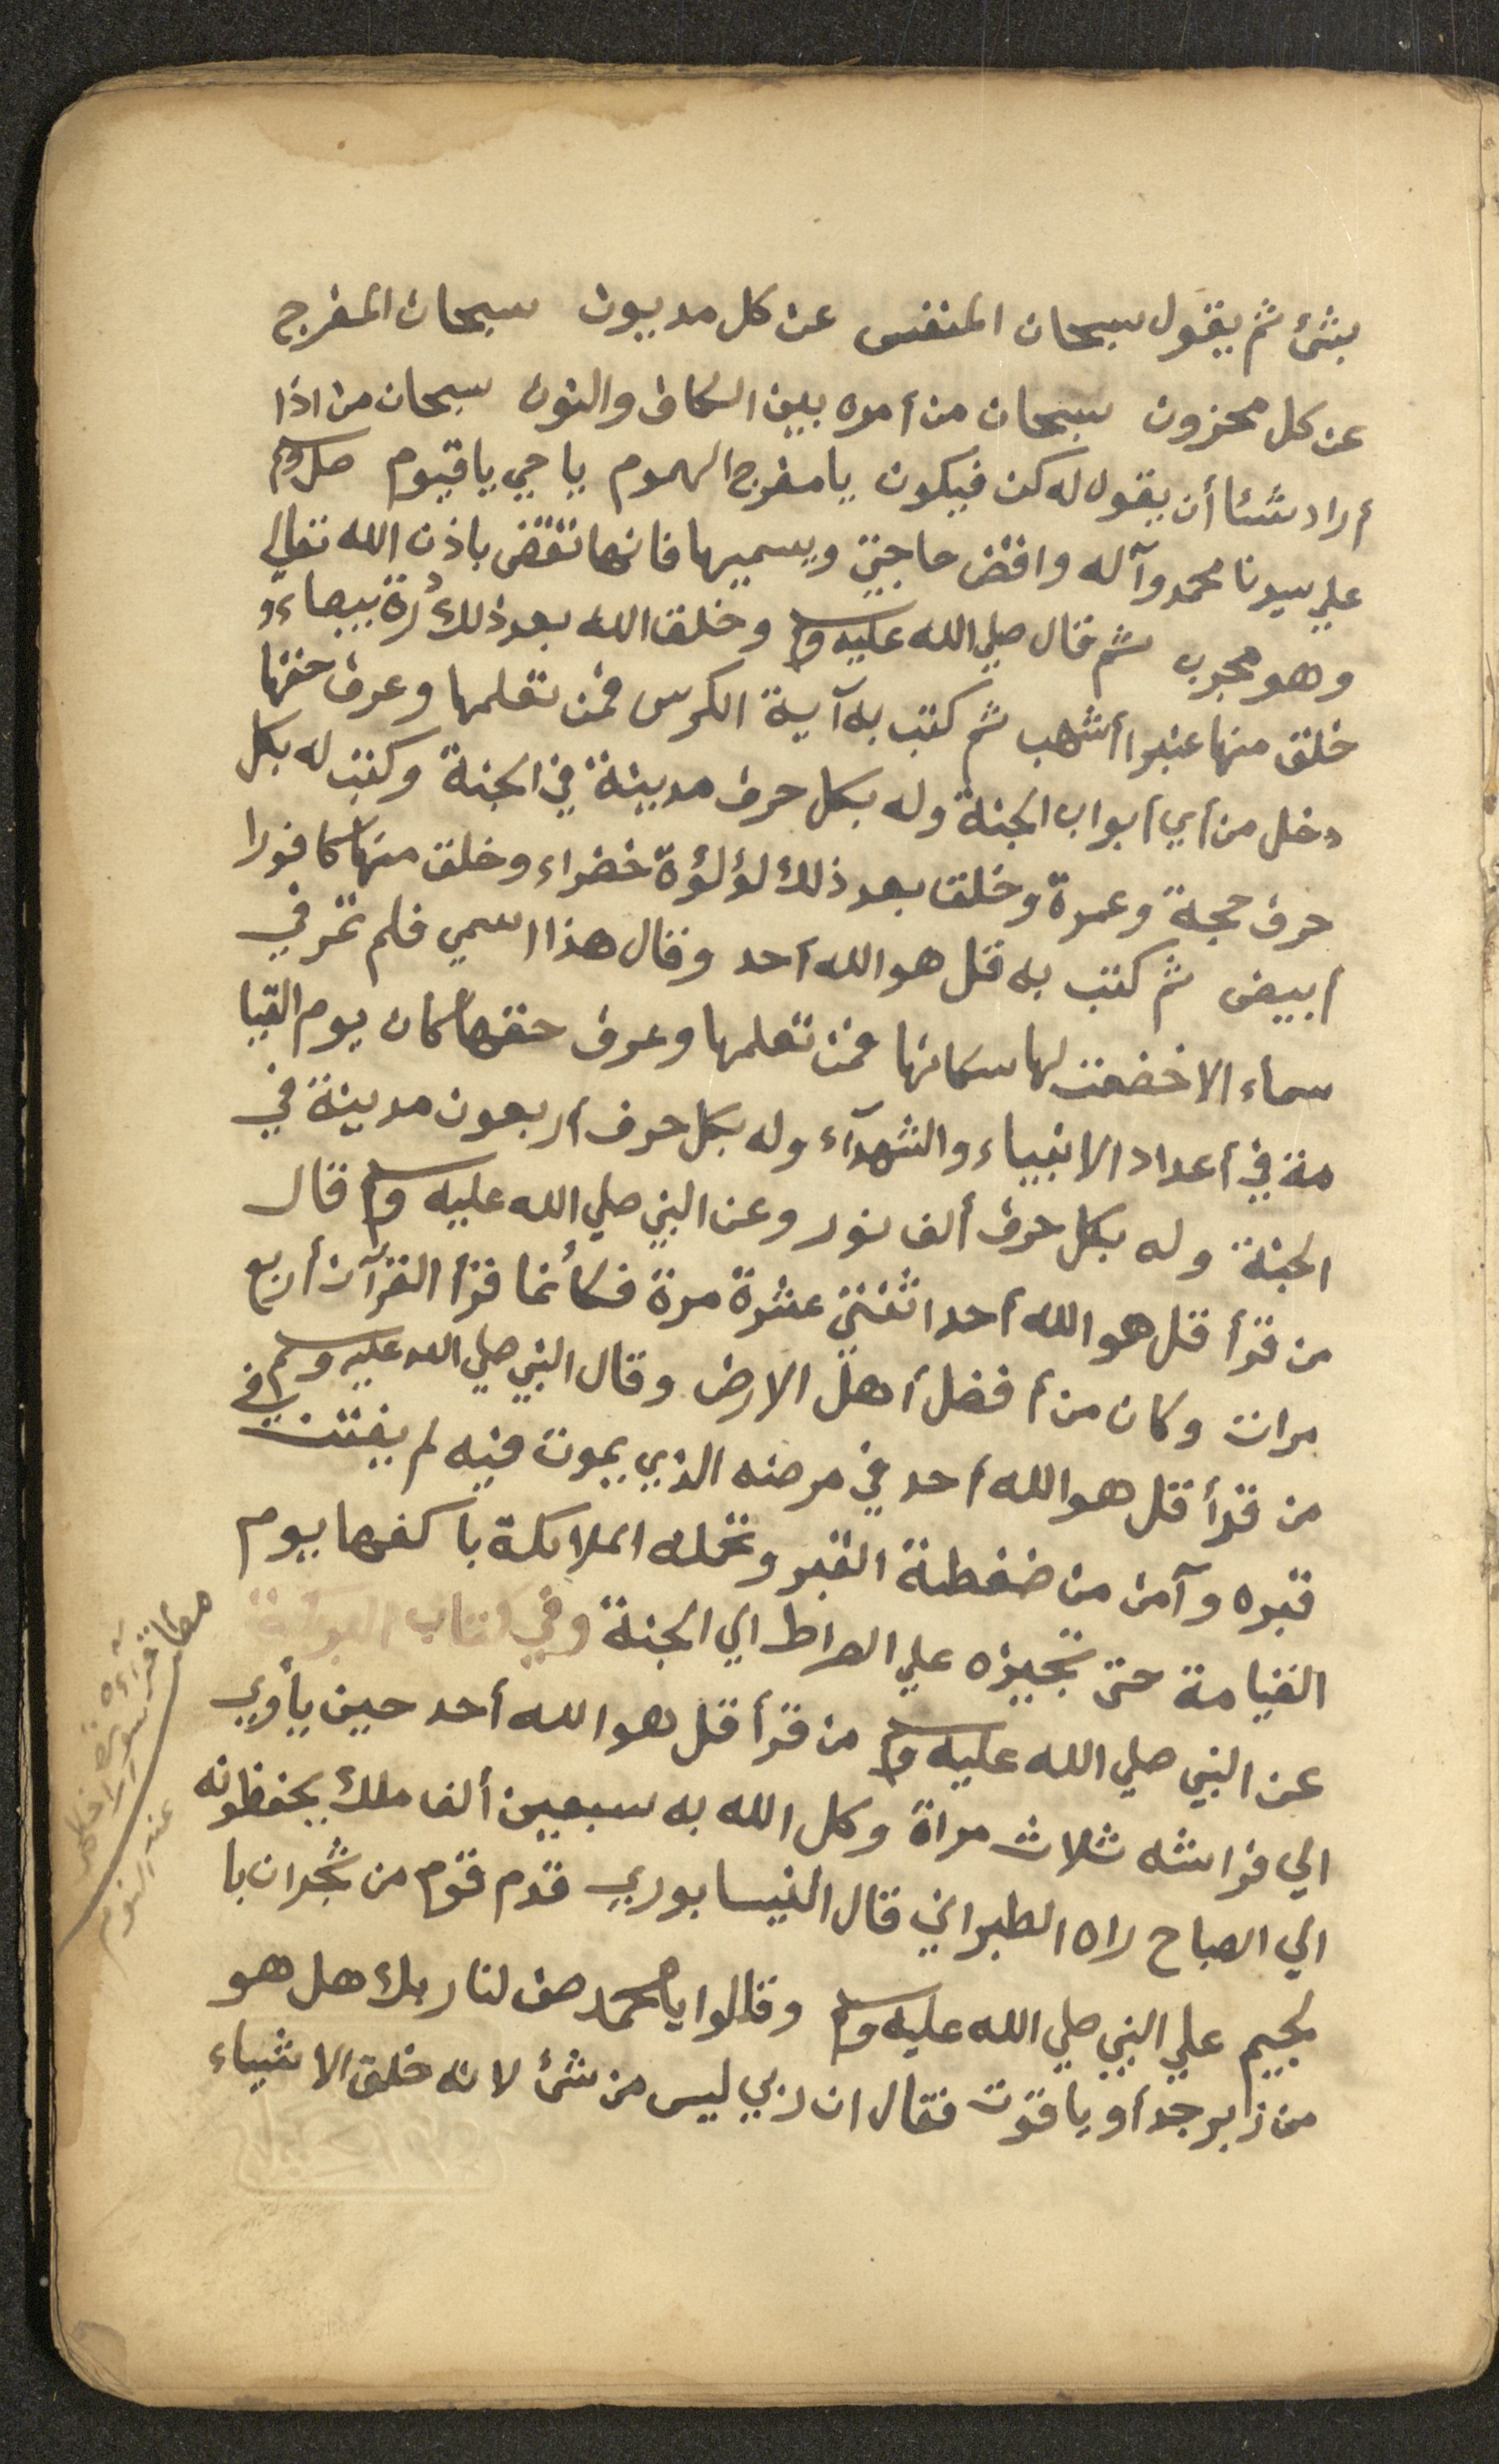 بشئ ثم يقول سبحان المنفس عن كل مديون سبحان المفرج
عن كل محزون سبحان من أمره بين الكاف والنون سبحان من اذا
أراد شئا أن يقول له كن فيكون يا مفرج الهموم يا حي يا قيوم صل وسلم
علي سيدنا محمد وآله واقض حاجتي ويسميها فانها تقضى باذن الله تعالي
وهو مجرب ثم قال صلي الله عليه وسلم وخلق الله بعد ذلك درة بيضاء و
خلق منها عنبرا أشهب ثم كتب به آية الكرسي فمن تعلمها وعرف حقها
دخل من أي أبواب الجنة وله بكل حرف مدينة في الجنة وكتب له بكل
حرف حجة وعمرة وخلق بعد ذلك لؤلؤة خضراء وخلق منها كافورا
أبيض ثم كتب به قل هو الله أحد وقال هذا اسمي فلم تمر في
سماء الا خضعت لها سكانها فمن تعلمها وعرف حقها كان يوم القيا
مة في أعداد الانبياء والشهدآء وله بكل حرف أربعون مدينة في
الجنة وله بكل حرف ألف نور وعن النبي صلي الله عليه وسلم قال
من قرأ قل هو الله أحد اثنتي عشرة مرة فكأنما قرأ القرآن أربع
مرات وكان من أفضل أهل الارض وقال النبي صلي الله عليه وسلم
من قرأ قل هو الله أحد في مرضه الذي يموت فيه لم يفتتن في
قبره وآمن من ضغطة القبر وتحمله الملائكة بأكفها يوم
القيامة حتى تجيزه علي الصراط الي الجنة وفي كتاب البركة
عن النبي صلي الله عليه وسلم من قرأ قل هو الله أحد حين يأوي
الي فراشه ثلاث مراة وكل الله به سبعين ألف ملك يحفظونه
الي الصباح راه الطبراني قال النيسابوري قدم قوم من نجران با
لجيم علي النبي صلي الله عليه وسلم وقالوا يا محمد صف لنا ربك هل هو
من زابرجد أو ياقوت فقال ان ربي ليس من شئ لانه خلق الاشياء
عند النوم